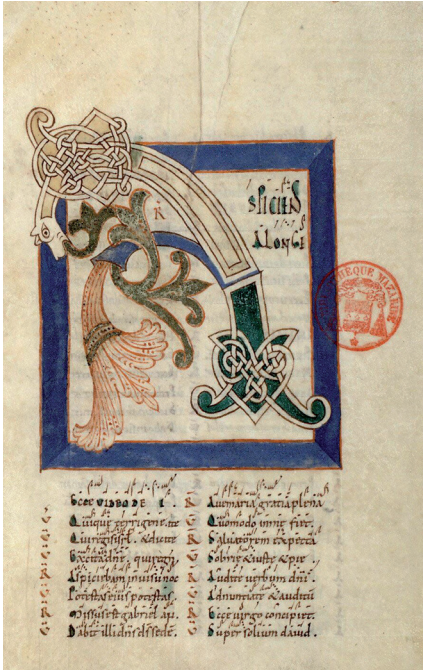 R
SPICIENS
ALONGE
THEQUE MAZARIN
ECCE VIDEO DEI.
Quique terrigene. et
Quiregisisrl. & dicite
Aspiciebam inuisu noc
Potestas eius potestas.
Missus est gabriel
Dabit illi dns ds sede.
R Aue maria gratia plena
Quomodo inme fiet.
R Saluatorem expecta
Sobrie & iuste & pie.
R Audite verbum dni.
Adnuntiate & auditu
R Ecce uirgo concipiet.
Super solium dauid.